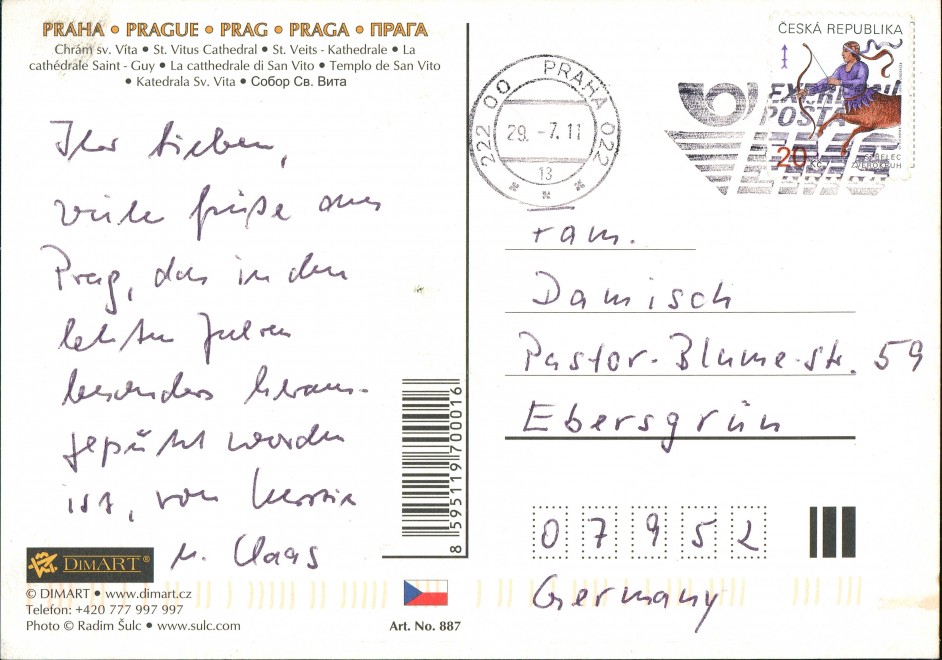 PRAHA • PRAGUE • PRAG • PRAGA • ПРАГА
Chrám sv. Víta • St. Vitus Cathedral • St. Veits - Kathedrale • La
cathédrale Saint - Guy • La catthedrale di San Vito • Templo de San Vito
• Katedrala Sv. Vita • Собор Св. Вита
Ihr Lieben,
viele Grüße aus
Prag, das in den
letzten Jahren
besonders heraus-
geputzt worden
ist, von
u. Claas
DIMART
© DIMART • www.dimart.cz
Telefon: +420 777 997 997
Photo © Radim Šulc • www.sulc.com
Art. No. 887
8 595119 700016
ČESKÁ REPUBLIKA
20 Kč
POSTA
222 00 PRAHA 022
29. -7. 11
13
Fam.
Damisch
Pastor-Blume-str. 59
Ebersgrün
07952
Germany